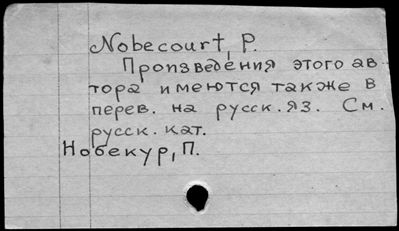 Nobecourt, P.
Произведения этого ав-
тора имеются также в
перев. на русск. яз. См.
русск. кат.
Нобекур, П.